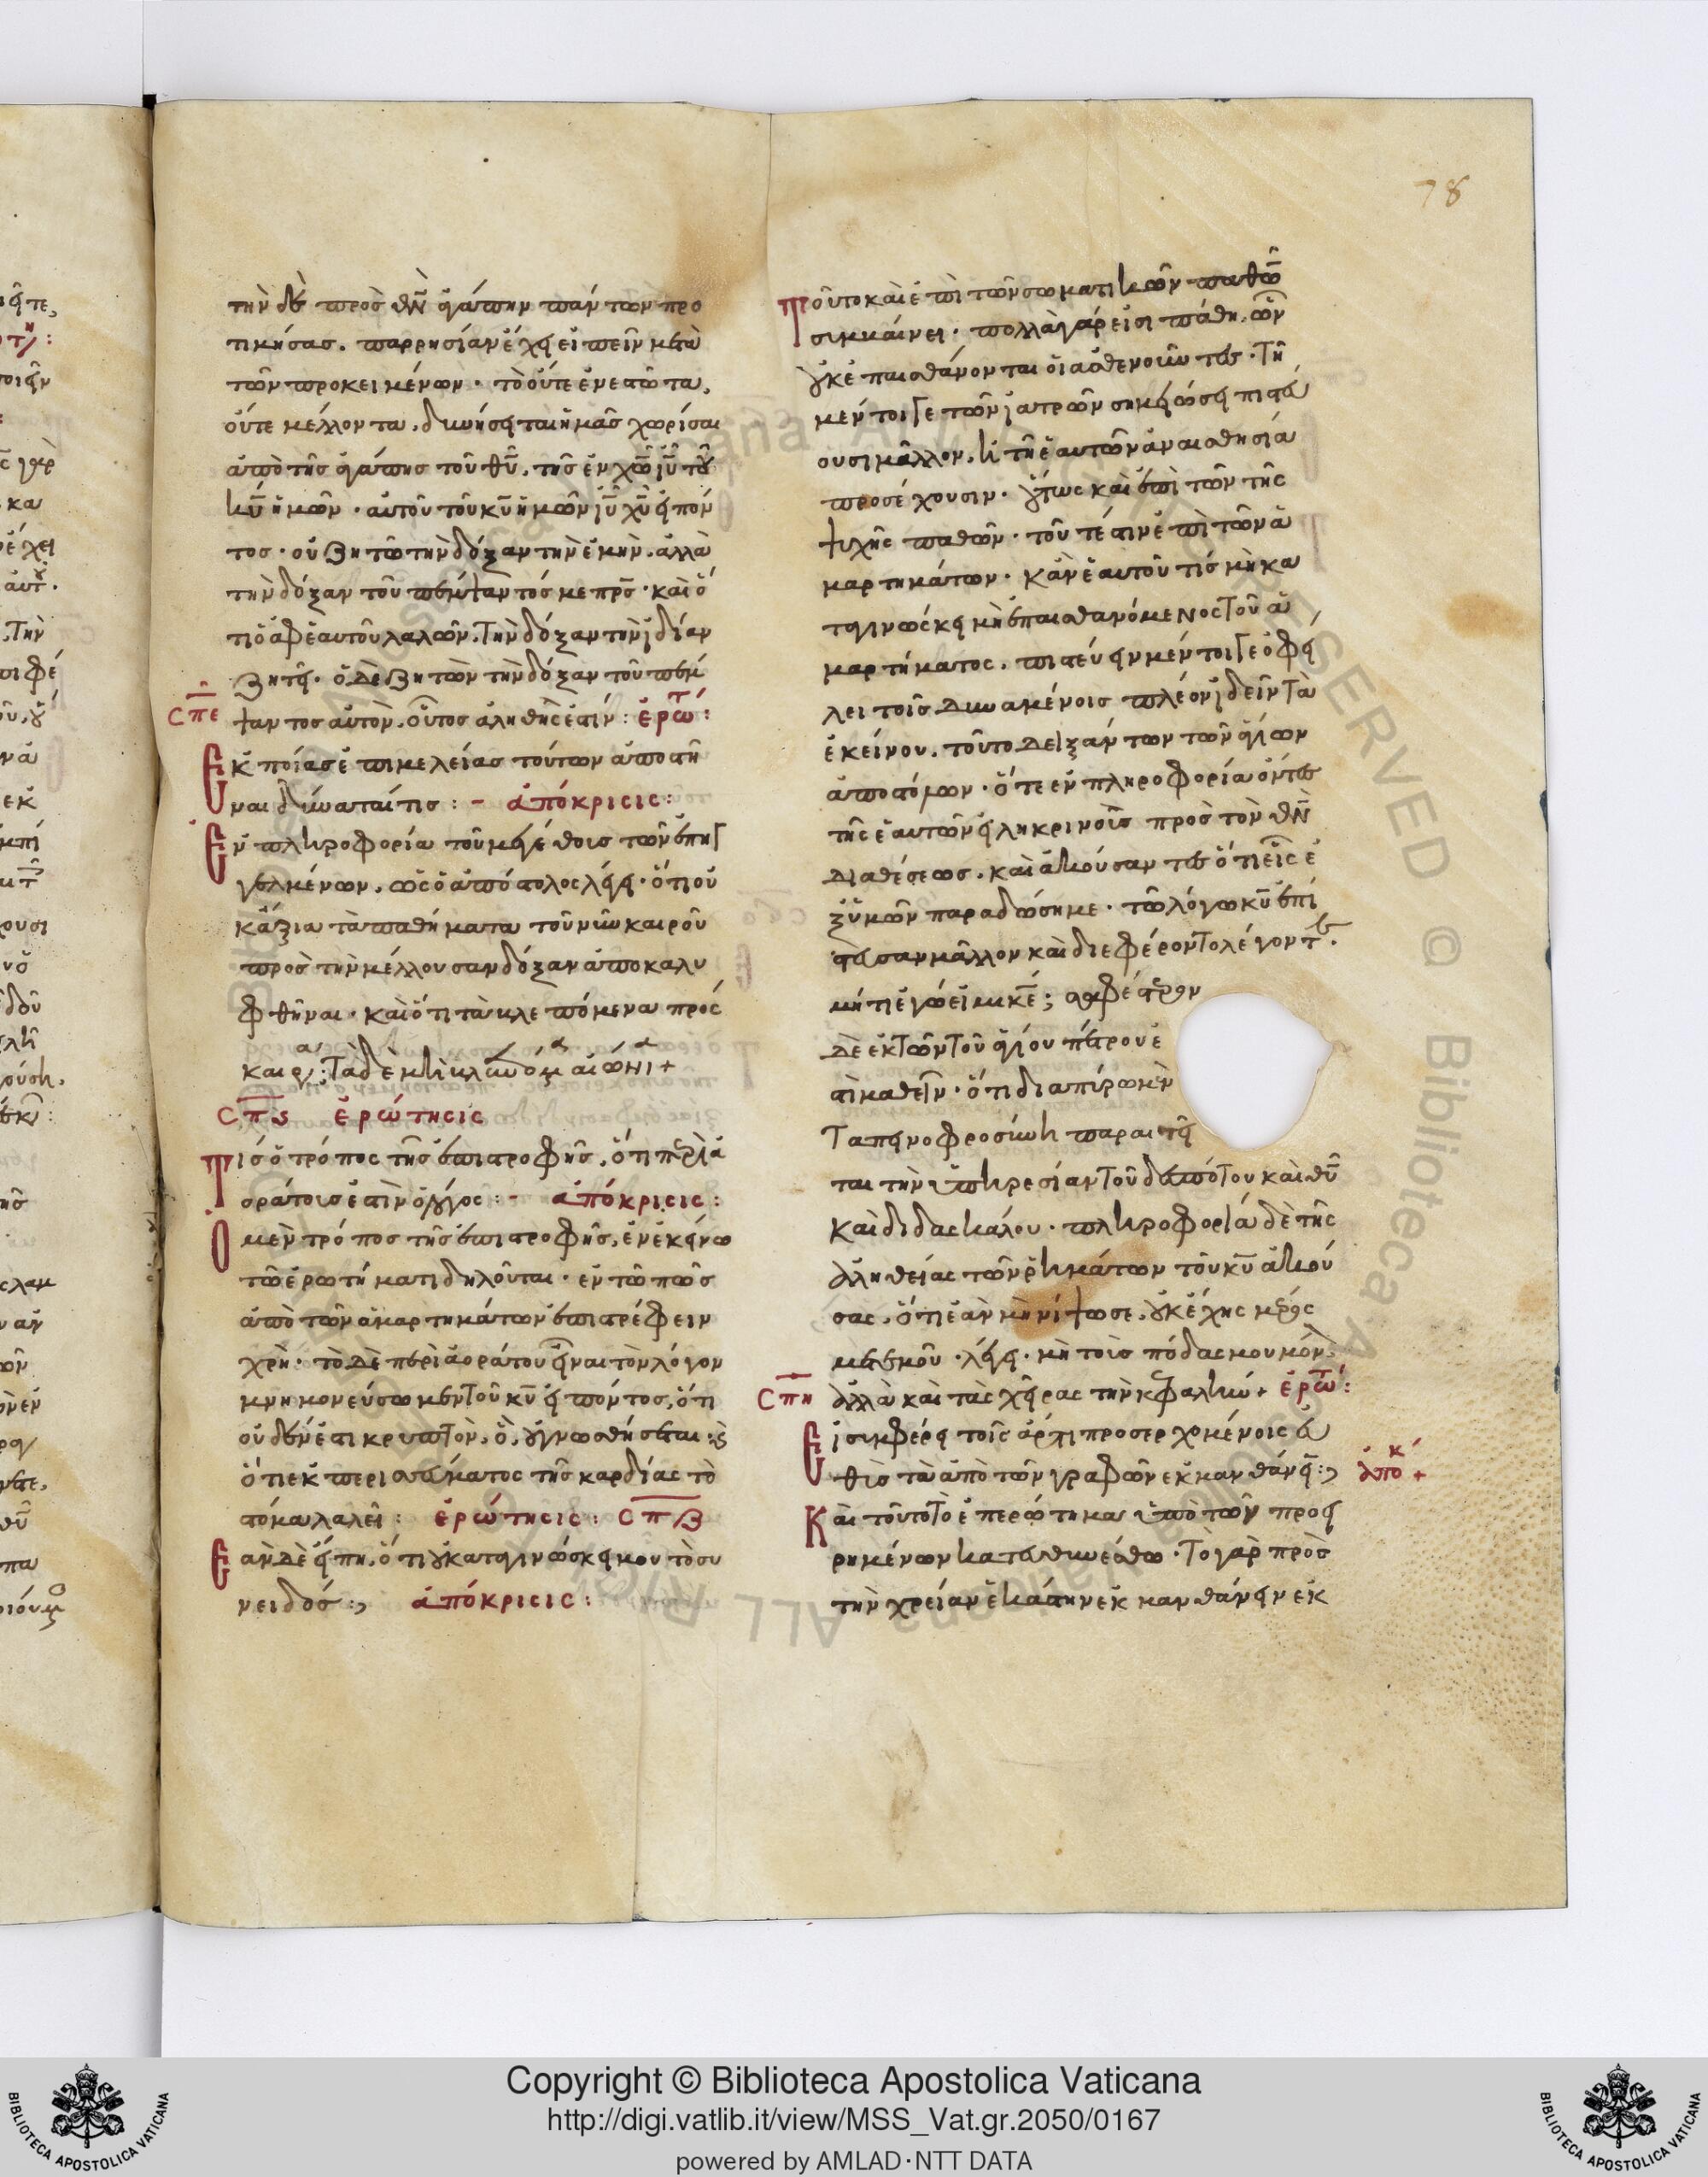 78
τὴν δὲ πρὸς θν̅ ἀγάπην πάντων προ
τιμήσας. παρρησίαν ἔχει εἰπεῖν μετὰ
τῶν προκειμένων· τὸ οὔτε ἐνεστῶτα,
οὔτε μέλλοντα, δυνήσεται ἡμᾶς χωρίσαι
ἀπὸ τῆς ἀγάπης τοῦ θυ̅, τῆς ἐν χω̅ ιυ̅ τῶ
κω̅ ἡμῶν· αὐτοῦ τοῦ κυ̅ ἡμῶν ιυ̅ χυ̅ εἰπόν
τος· οὐ ζητῶ τὴν δόξαν τὴν ἐμὴν. ἀλλὰ
τὴν δόξαν τοῦ πέμψαντός με πρς̅· καὶ ὅ
τι ὁ ἀφ' ἑαυτοῦ λαλῶν, τὴν δόξαν τὴν ἰδίαν
ζητεῖ· ὁ δὲ ζητῶν τὴν δόξαν τοῦ πέμ
σπε ψαντος αὐτὸν, οὗτος ἀληθής ἐστίν: ἐρώτ:
Ἐκ ποίας ἐπιμελείας τούτων ἀποστῆ
ναι δύναταί τις:- ἀπόκρισις:
Ἐν πληροφορία τοῦ μεγέθους τῶν ἐπηγ
γελμένων. ὡς ὁ ἀπόστολος λέγει· ὅτι οὐ
κ ἄξια τὰ παθήματα τοῦ νῦν καιροῦ
πρὸς τὴν μέλλουσαν δόξαν ἀποκαλυ
φθῆναι· καὶ ὅτι τὰ βλεπόμενα πρόσ
καιρα: τὰ δὲ μὴ βλεπόμενα αἰώνια +
σπς ἐρώτησις
Τίς ὁ τρόπος τῆς ἐπιστροφῆς, ὅτι περὶ ἀ
οράτους ἐστὶν ὁ λόγος:- ἀπόκρισις:
Ὁ μὲν τρόπος τῆς ἐπιστροφῆς, ἐν ἐκείνω
τῶ ἐρωτήματι δηλοῦται· ἐν τῶ πῶς
ἀπὸ τῶν ἁμαρτημάτων ἐπιστρέφειν
χρὴ· τὸ δὲ περὶ ἀοράτου εἶναι τὸν λόγον
μνημονεύσωμεν τοῦ κυ̅ εἰπόντος, ὅτι
οὐδέν ἐστι κρυπτὸν, ὃ οὐ γνωσθήσεται: ς
ὅτι ἐκ περισσεύματος τῆς καρδίας τὸ
στόμα λαλεῖ: ἐρώτησις: σπζ
Ἐὰν δὲ εἴπη, ὅτι οὐ καταγινώσκει μου τὸ συ
νειδός:, ἀπόκρισις:
Τοῦτο καὶ ἐπὶ τῶν σωματικῶν παθῶ
συμμαίνει· πολλὰ γάρ εἰσι πάθη, ὧν
οὐκ ἐπαισθάνονται οἱ ἀσθενοῦντες· τῆ
μέν τοι γε τῶν ἰατρῶν σημειώσει πιστεύ
ουσι μᾶλλον, ἢ τῆ ἑαυτῶν ἀναισθησία
προσέχουσιν· οὕτως καὶ ἐπὶ τῶν τῆς
ψυχῆς παθῶν· τοῦτέστιν ἐπὶ τῶν ἁ
μαρτημάτων· κἂν ἑαυτοῦ τίς μὴ κα
ταγινώσκει μὴ ἐπαισθανόμενος τοῦ ἁ
μαρτήματος, πιστεύειν μέν τοι γε ὀφεί
λει τοῖς δυναμένοις πλέον ἰδεῖν τὰ
ἐκείνου. τοῦτο δειξάντων τῶν ἁγίων
ἀποστόλων· ὅτε ἐν πληροφορία ὄντες
τῆς ἑαυτῶν εἰληκρινοῦς πρὸς τὸν θν̅
διαθέσεως. καὶ ἀκούσαντες ὅτι εἷς ἐ
ξ ὑμῶν παραδώσει με· τῶ λόγω κυ̅ ἐπί
στευσαν μᾶλλον καὶ διεφέροντο λέγοντες·
μή τι ἐγώ εἰμι κε̅; σαφέστερον
δὲ ἐκ τῶν τοῦ ἁγίου πέτρου ἔ
στι μαθεῖν· ὅτι διαπύρω μὲν
ταπεινοφροσύνη παραιτεῖ
ται τὴν ὑπηρεσίαν τοῦ δεσπότου καὶ θυ̅
καὶ διδασκάλου· πληροφορία δὲ τῆς
ἀληθείας τῶν ῥημάτων τοῦ κυ̅ ἀκού
σας, ὅτι ἐὰν μὴ νίψω σε, οὐκ ἔχης μέρος
μετ' ἐμοῦ· λέγει· μὴ τοὺς πόδας μου μόνον
σπη ἀλλὰ καὶ τὰς χεῖρας τὴν κεφαλὴν + ἐρώτ:
Εἰ συμφέρει τοῖς ἄρτι προσερχομένοις εὐ
θὺς τὰ ἀπὸ τῶν γραφῶν ἐκμανθάνειν:, ἀπόκ +
Καὶ τοῦτο τὸ ἐπερώτημα ὑπὸ τῶν προει
ρημένων κατευθυνέσθω· τὸ γὰρ πρὸς
τὴν χρείαν ἑκάστην ἐκμανθάνειν ἐκ
Copyright © Biblioteca Apostolica Vaticana
http://digi.vatlib.it/view/MSS_Vat.gr.2050/0167
powered by AMLAD·NTT DATA
BIBLIOTECA APOSTOLICA VATICANA
BIBLIOTECA APOSTOLICA VATICANA